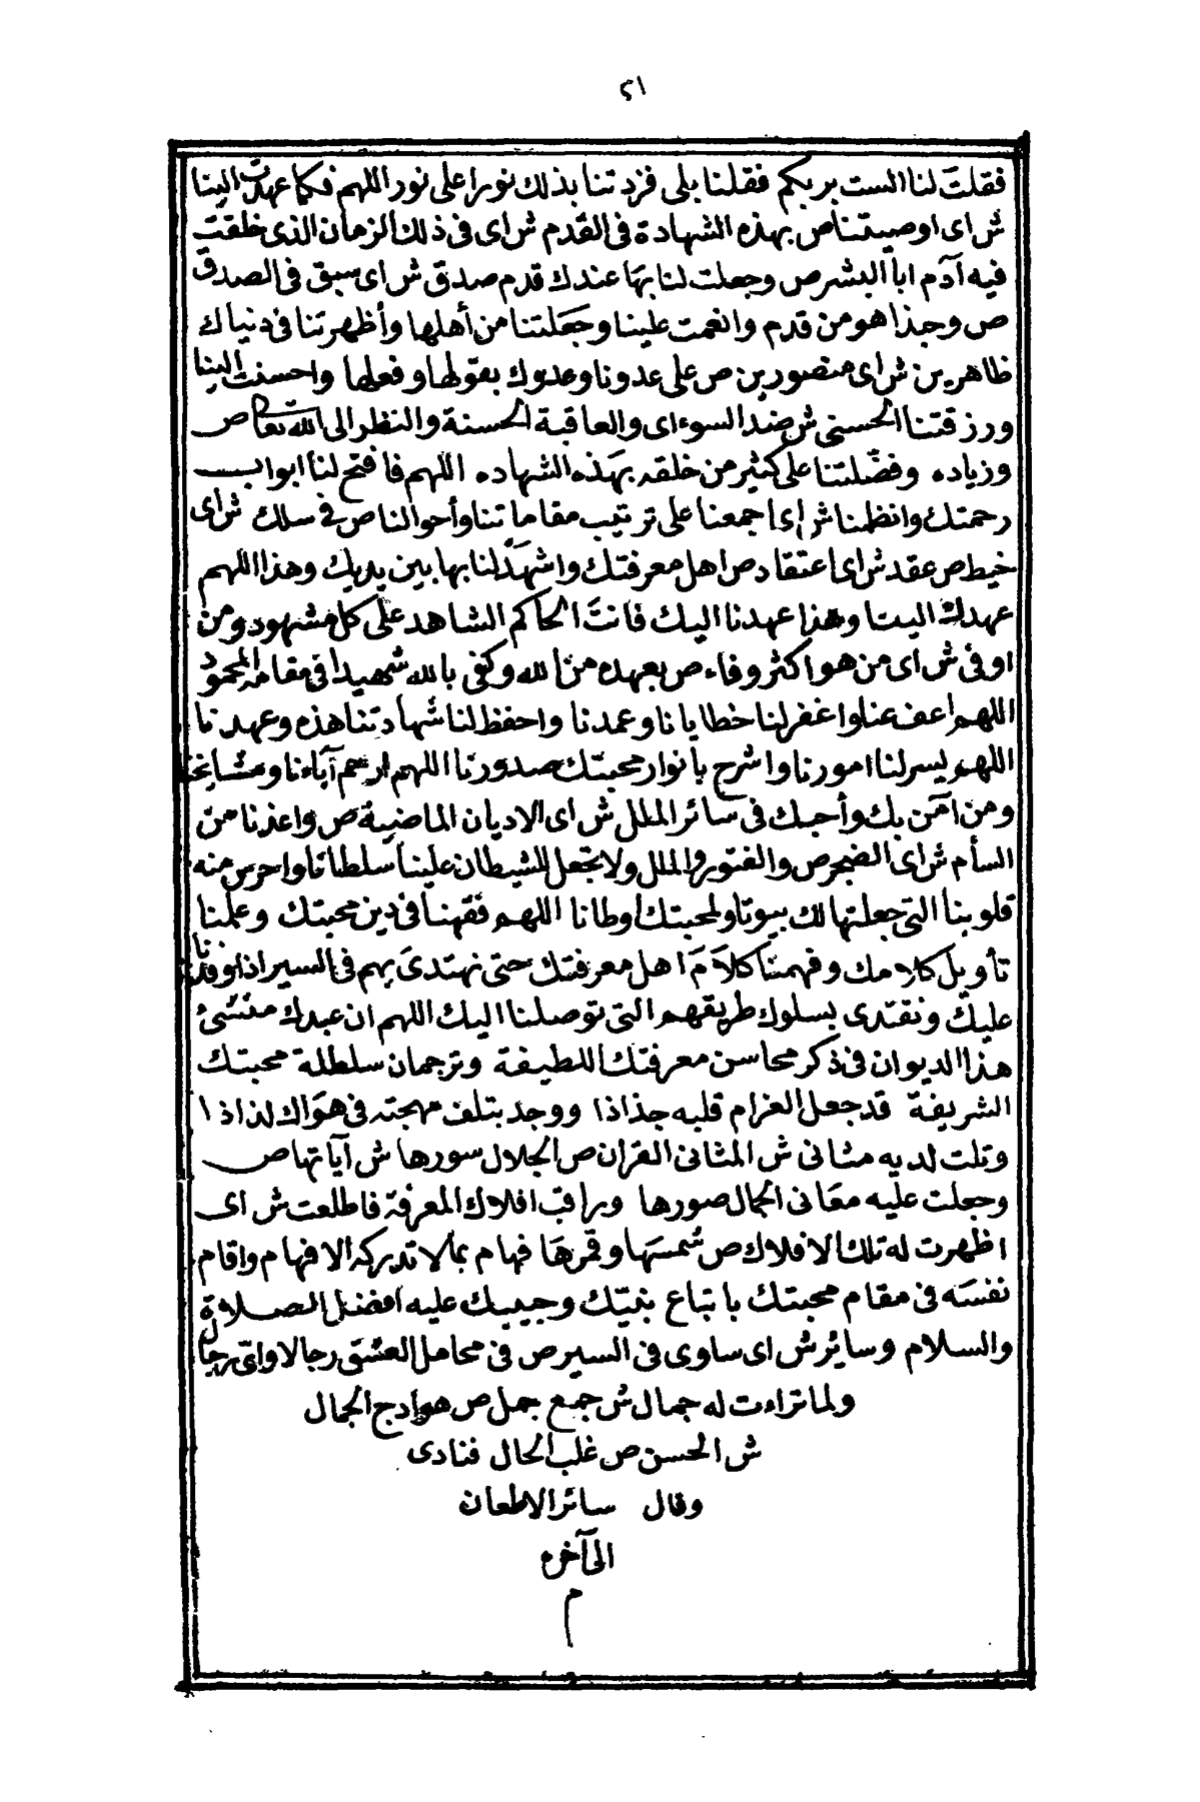 ٢١
فقلت لنا الست بربكم فقلنا بلى فزدتنا بذلك نورا على نور اللهم فكما عهدت الينا
ش اى اوصيتنا ص بهذه الشهادة فى القدم ش اى فى ذلك الزمان الذى خلقت
فيه آدم ابا البشر ص وجعلت لنا بها عندك قدم صدق ش اى سبق فى الصدق
ص وحبذا هو من قدم وانعمت علينا وجعلتنا من أهلها وأظهرتنا فى دنياك
ظاهرين ش اى منصورين ص على عدونا وعدوك بقولها وفعلها واحسنت الينا
ورزقتنا الحسنى ش ضد السوء اى والعاقبة الحسنة والنظر الى الله تعا ص
وزياده وفضلتنا على كثير من خلقه بهذه الشهاده اللهم فافتح لنا ابواب
رحمتك وانظمنا ش اى اجمعنا على ترتيب مقاماتنا وأحوالنا ص فى سلك ش اى
خيط ص عقد ش اى اعتقاد ص اهل معرفتك واشهد لنا بها بين يديك وهذا اللهم
عهدك الينا وهذا عهدنا اليك فانت الحاكم الشاهد على كل مشهود ومن
اوفى ش اى من هو اكثر وفاء ص بعهده من الله وكفى بالله شهيدا فى مقامه المحمود
اللهم اعف عنا واغفر لنا خطايانا وعمدنا واحفظ لنا شهادتنا هذه وعهدنا
اللهم يسر لنا امورنا واشرح بانوار محبتك صدورنا اللهم ارحم آباءنا ومشايخنا
ومن امن بك وأحبك فى سائر الملل ش اى الاديان الماضية ص واعذنا من
السأم ش اى الضجر ص والفتور والملل ولا تجعل للشيطان علينا سلطانا واحرس منه
قلوبنا التى جعلتها لك بيوتا ولمحبتك اوطانا اللهم فقهنا فى دين محبتك وعلمنا
تأويل كلامك وفهمنا كلام اهل معرفتك حتى نهتدى بهم فى السير اذا وفدنا
عليك ونقتدى بسلوك طريقهم التى توصلنا اليك اللهم ان عبدك منشئ
هذا الديوان فى ذكر محاسن معرفتك اللطيفة وترجمان سلطلة محبتك
الشريفة قد جعل الغرام قلبه جذاذا ووجد بتلف مهجته فى هواك لذاذا
وتلت لديه مثانى ش المثانى القران ص الجلال سورها ش آياتها ص
وجعلت عليه معانى الجمال صورها وراقب افلاك المعرفة فاطلعت ش اى
اظهرت له تلك الافلاك ص شمسها وقمرها فهام بما لا تدركه الافهام واقام
نفسه فى مقام محبتك باتباع نبيك وحبيبك عليه افضل الصلاة
والسلام وساير ش اى ساوى فى السير ص فى محامل العشق رجالا واى رجال
ولما تراءت له جمال ش جمع جمل ص هوادج الجمال
ش الحسن ص غلب الحال فنادى
وقال سائر الاظعان
الى آخره
م